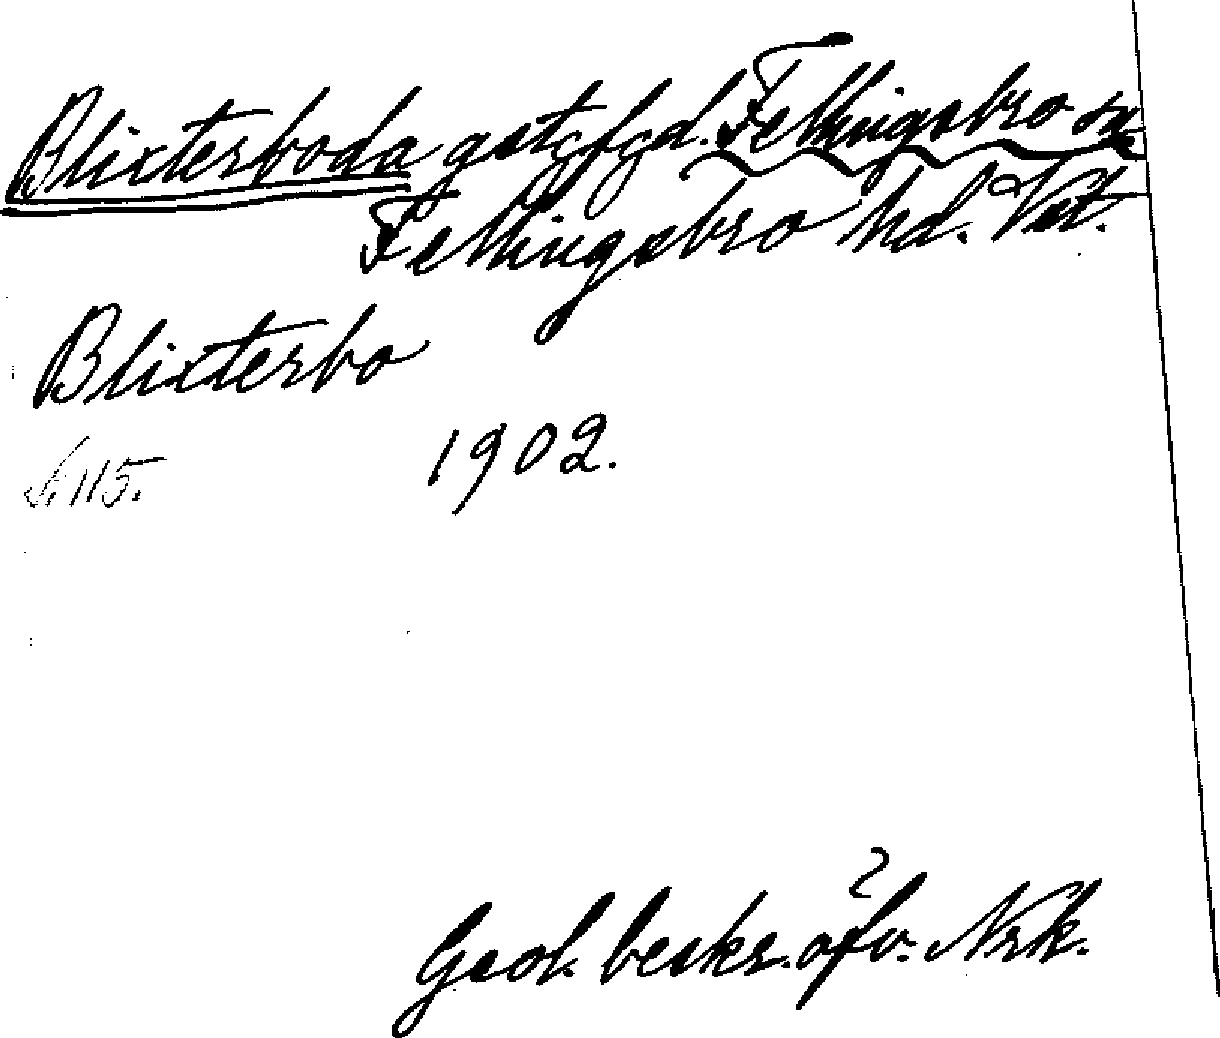 Blixterboda gstgfgd. Fellingsbro sn
Fellingsbro hd. Vstl.
Blixterbo
s. 115. 1902.
Geol. beskr. öfv. Nrk.